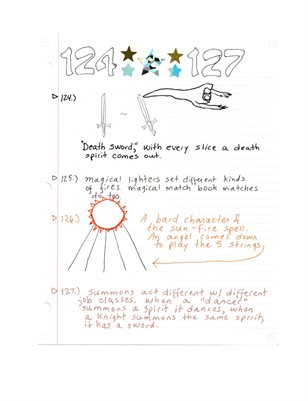 124 127
124.)
"Death sword," with every slice a death
spirit comes out.
125.) magical lighters set different kinds
of fires magical match book matches
do too.
126.)
A bard character &
the sun-fire spell.
An angel comes down
to play the 5 strings.
127.) summons act different w/ different
job classes. when a "dancer"
summons a spirit it dances, when
a Knight summons the same spirit,
it has a sword.